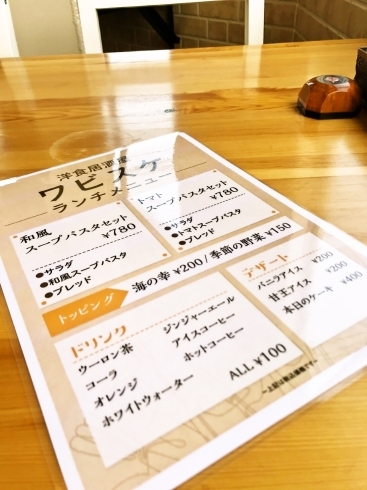 洋食居酒屋
ワビスケ
ランチメニュー
和風
スープパスタセット
¥780
●サラダ
●和風スープパスタ
●ブレッド
トマト
スープパスタセット
¥780
●サラダ
●トマトスープパスタ
●ブレッド
トッピング
海の幸 ¥200/季節の野菜 ¥150
ドリンク
ウーロン茶
コーラ
オレンジ
ホワイトウォーター
ジンジャーエール
アイスコーヒー
ホットコーヒー
ALL ¥100
デザート
バニラアイス ¥200
甘王アイス ¥200
本日のケーキ ¥400
～上記は税込価格です～